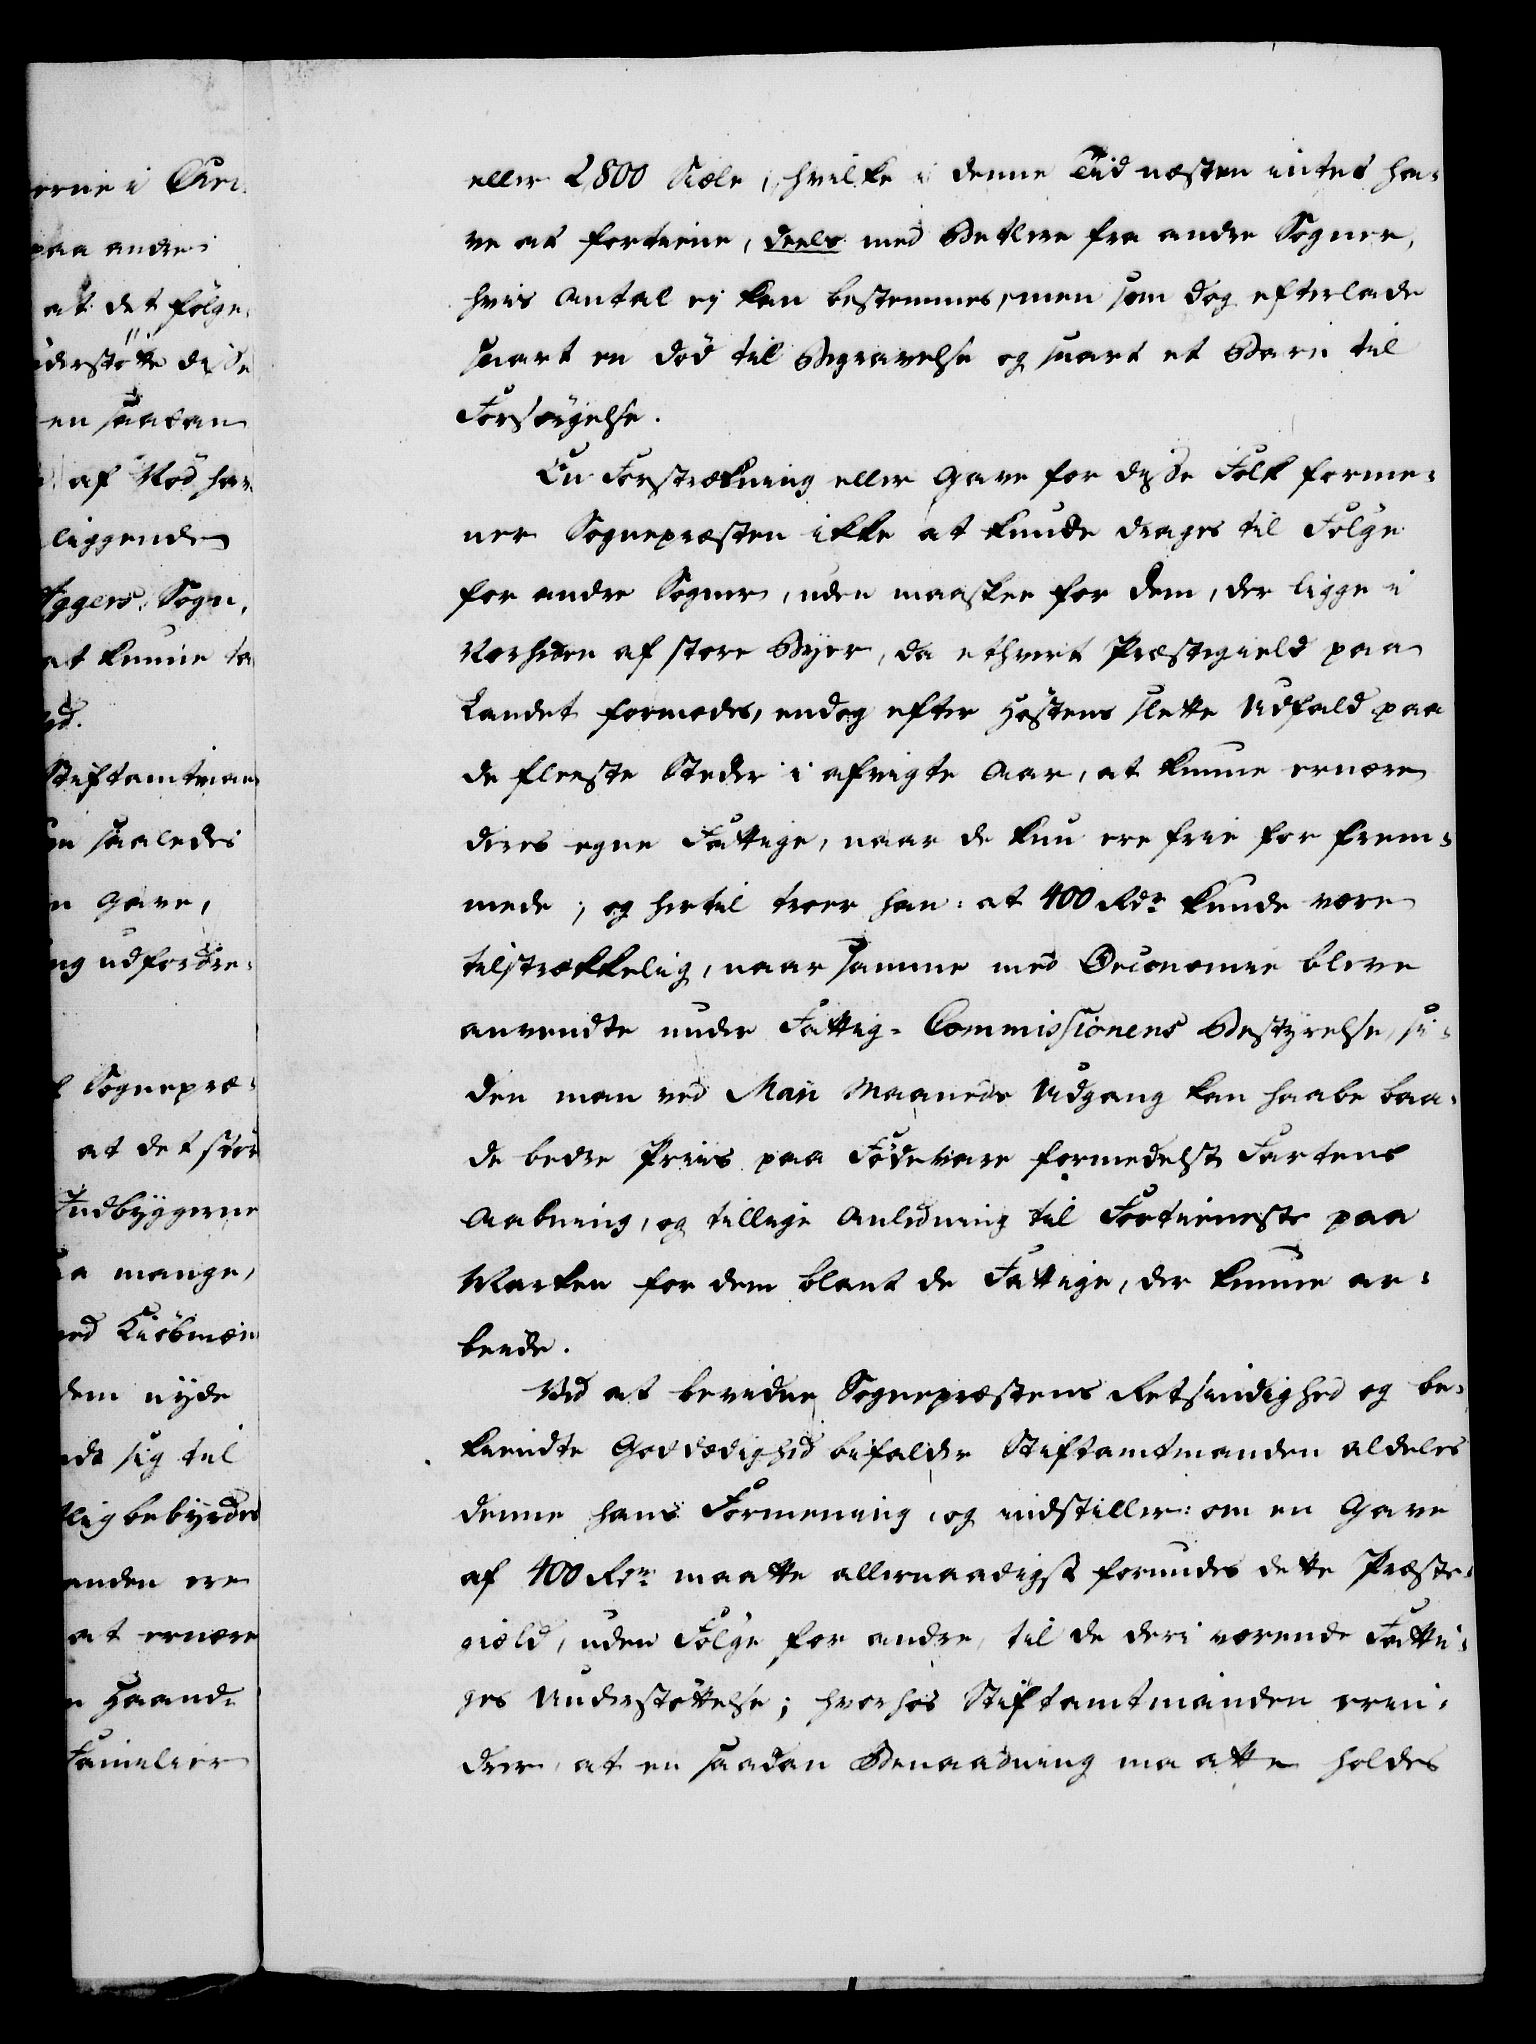 erne i Chri
paa andre
at det følge
nderstötte disse
en saadan
af Nød har
liggende
Aggers Sogn,
at kunne ta
Stiftamtman
saaledes
Gave,
ng udfordre-
Sognepræ-
at det stör
Indbyggerne
a mange,
ed Kiöbmæn
dem nyde
sig til
lig bebyrdes
anden ere
at ernære
Haand-
Familier
eller 2,800 Siæle, hvilke i denne Tiid næsten intet ha-
ve at fortiene, deels med Betlere fra andre Sogner,
hvis Antal ej kan bestemmes, men som dog efterlade
snart en död til Begravelse og snart et Barn til
Forsørgelse.
En Forstrækning eller Gave for disse Folk forme-
ner Sognepræsten ikke at kunde drages til Følge
for andre Sogner, uden maaskee for dem, der ligge i
Nærheden af store Byer, da ethvert Præstegield paa
Landet formodes, endog efter Høstens slette Udfald paa
de fleeste Steder i afvigte Aar, at kunne ernære
deres egne Fattige, naar de kun ere frie for frem-
mede; og hertil troer han: at 400 Rdr kunde være
tilstrækkelig, naar samme med Oeconomie bleve
anvendte under Fattig-Commissionens Bestyrelse, si-
den man ved Maji Maaneds Udgang kan haabe baa-
de bedre Priis paa Fødevare formedelst Fartens
Aabning, og tillige Anledning til Fortieneste paa
Marken for dem blant de Fattige, der kunne ar-
beide.
Ved at bevidne Sognepræstens Retsindighed og be-
kiendte Goddædighed bifalder Stiftamtmanden aldeles
denne hans Formening, og indstiller: om en Gave
af 400 Rdr maatte allernaadigst forundes dette Præste-
giæld, uden Følge for andre, til de deri værende Fatti-
ges Understöttelse; hvorhos Stiftamtmanden erin-
drer, at en saadan Benaadning maatte holdes